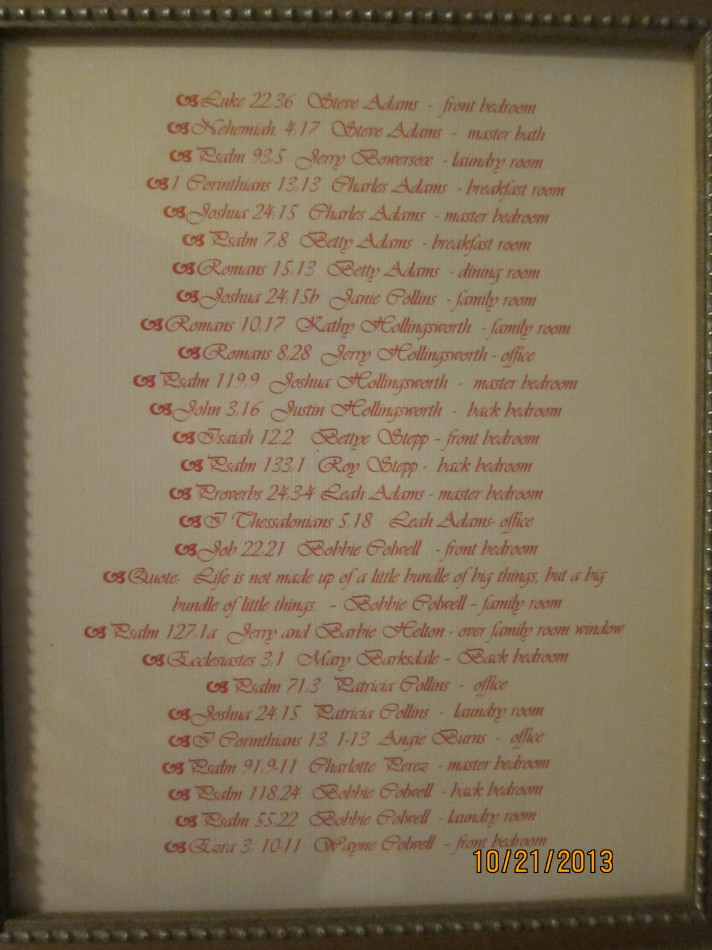 Luke 22:36 Steve Adams - front bedroom
Nehemiah 4:17 Steve Adams - master bath
Psalm 93:5 Jerry Bowersox - laundry room
1 Corinthians 13:13 Charles Adams - breakfast room
Joshua 24:15 Charles Adams - master bedroom
Psalm 7:8 Betty Adams - breakfast room
Romans 15:13 Betty Adams - dining room
Joshua 24:15b Janie Collins - family room
Romans 10:17 Kathy Hollingsworth - family room
Romans 8:28 Jerry Hollingsworth - office
Psalm 119:9 Joshua Hollingsworth - master bedroom
John 3:16 Justin Hollingsworth - back bedroom
Isaiah 12:2 Bettye Stepp – front bedroom
Psalm 133:1 Roy Stepp - back bedroom
Proverbs 24:3-4 Leah Adams - master bedroom
I Thessalonians 5:18 Leah Adams- office
Job 22:21 Bobbie Colwell - front bedroom
Quote: Life is not made up of a little bundle of big things, but a big
bundle of little things. – Bobbie Colwell – family room
Psalm 127:1a Jerry and Barbie Helton - over family room window
Ecclesiastes 3:1 Mary Barksdale – Back bedroom
Psalm 71:3 Patricia Collins - office
Joshua 24:15 Patricia Collins - laundry room
I Corinthians 13: 1-13 Angie Burns - office
Psalm 91:9-11 Charlotte Perez - master bedroom
Psalm 118:24 Bobbie Colwell - back bedroom
Psalm 55:22 Bobbie Colwell - laundry room
Ezra 3: 10-11 Wayne Colwell - front bedroom
10/21/2013